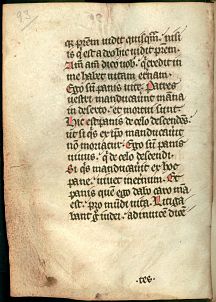 quia prēm uidit quisqm̄. nisi
is q̄ est a deo hic uidit prēm.
Am̄ am̄ dico uob. q̄ credit in
me habet uitam eternā.
Ego sū panis uite. Patres
uestri manducauēt māna
in deserto. et mortui sunt.
Hic est panis de celo descendēs.
ut si q̄s ex ip̄o manducauīt
nō moriatur. Ego sū panis
uiuus. q̄ de celo descendi.
Si q̄s manducauīt ex hoc
pane. uiuet ī eternum. Et
panis quē ego dabo caro mā
est. pro mūdi uita. Litiga
bant g̊ iudei. ad inuicē dicē
·tes·